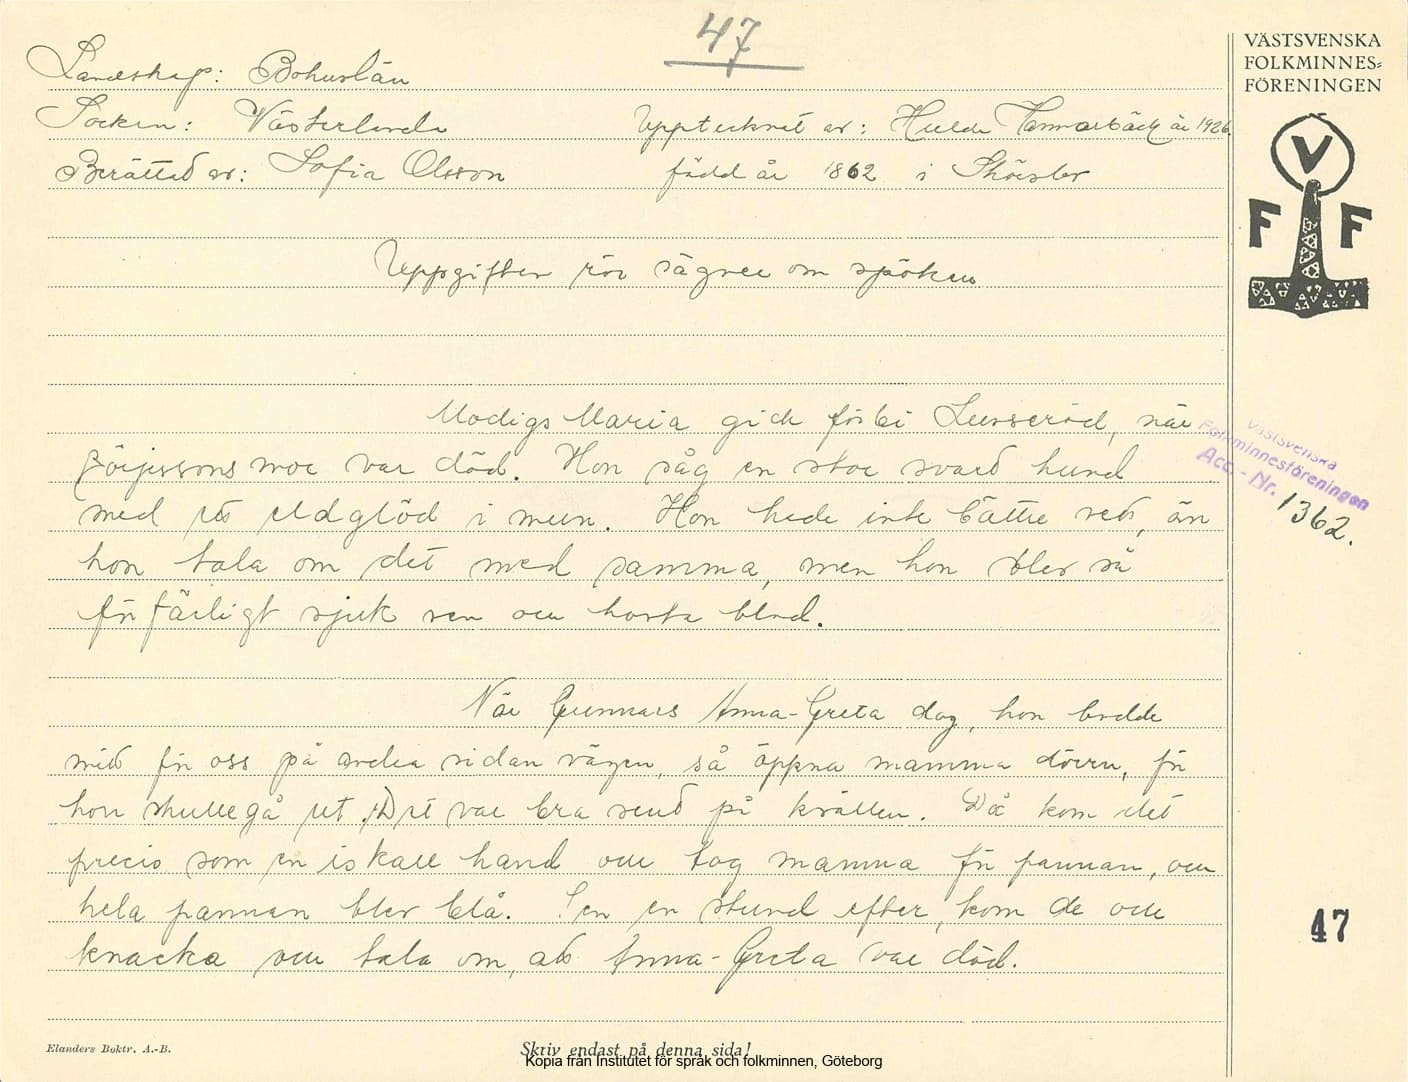 47
VÄSTSVENSKA
FOLKMINNES=
FÖRENINGEN
Landskap: Bohuslän
Socken: Västerlanda
Upptecknat av: Hulda Hammarbäck år 1926.
Berättad av: Sofia Olsson
född år 1862 i
V
F F
Uppgiften rör sägner om spöken
Modigs Maria gick förbi när
Västsvenska
Folkminnesföreningen
Acc.-Nr. 1362.
mor var död. Hon såg en stor svart hund
med ett eldglöd i mun. Hon hade inte bättre vett, än
hon tala om det med samma, men hon blev så
förfärligt sjuk sen och hosta blod.
När Gunnars Anna-Greta dog, hon bodde
mitt för oss på andra sidan vägen, så öppna mamma dörrn, för
hon skulle gå ut. Det var bra sent på kvällen. Då kom det
precis som en iskall hand och tog mamma för pannan, och
hela pannan blev blå. Sen en stund efter, kom de och
knacka och tala om, att Anna-Greta var död.
47
Elanders Boktr. A.-B.
Skriv endast på denna sida!
Kopia från Institutet för språk och folkminnen, Göteborg